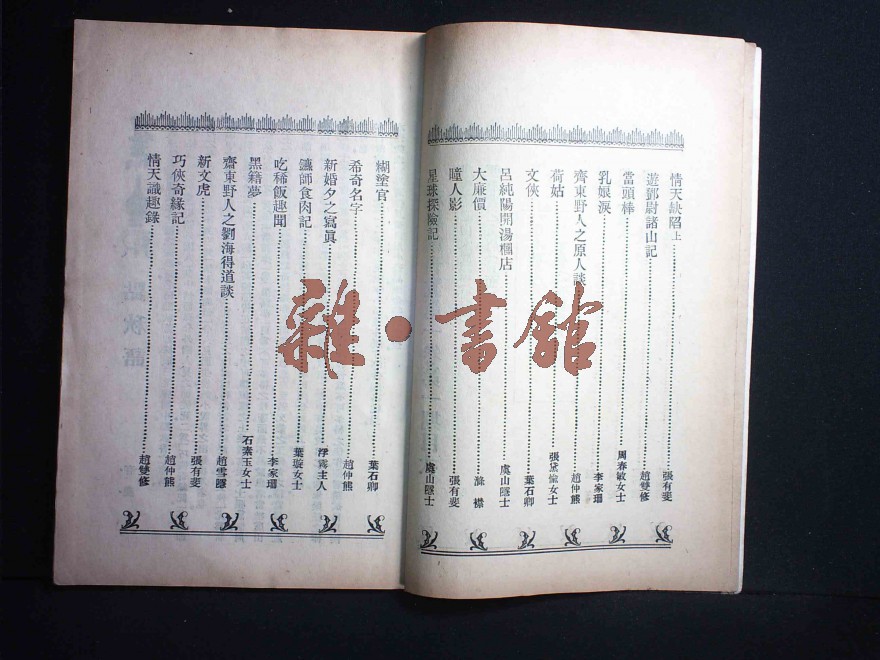 情天缺陷上……張有斐
遊鄧尉諸山記……趙雙修
當頭棒……周春敏女士
乳娘淚……李家珊
齊東野人之原人談……趙仲熊
荷姑……張黛儂女士
文俠……葉石卿
呂純陽開湯糰店……虞山隱士
大廉價……滌襟
瞳人影……張有斐
星球探險記……虞山隱士
糊塗官……葉石卿
希奇名字……趙仲熊
新婚夕之寫眞……浮雲主人
鑣師食肉記……葉璇女士
吃稀飯趣聞……李家珊
黑籍夢……石素玉女士
齋東野人之劉海得道談……趙雪隱
新文虎……張有斐
巧俠奇緣記……趙仲熊
情天識趣錄……趙雙修
雜·書館